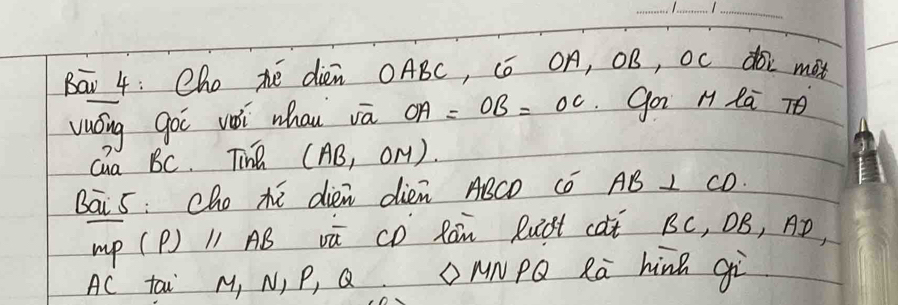 Bài 4: Cho tứ diện OABC, có OA, OB, OC đôi một
vuông góc với nhau và OA = OB = OC. Gọi M là TĐ
của BC. Tính (AB, OM).
Bài 5: Cho tứ diện diện ABCD có AB ⊥ CD.
mp (P) // AB và CD lần lượt cắt BC, DB, AD,
AC tại M, N, P, Q. ◇ MNPQ là hình gì